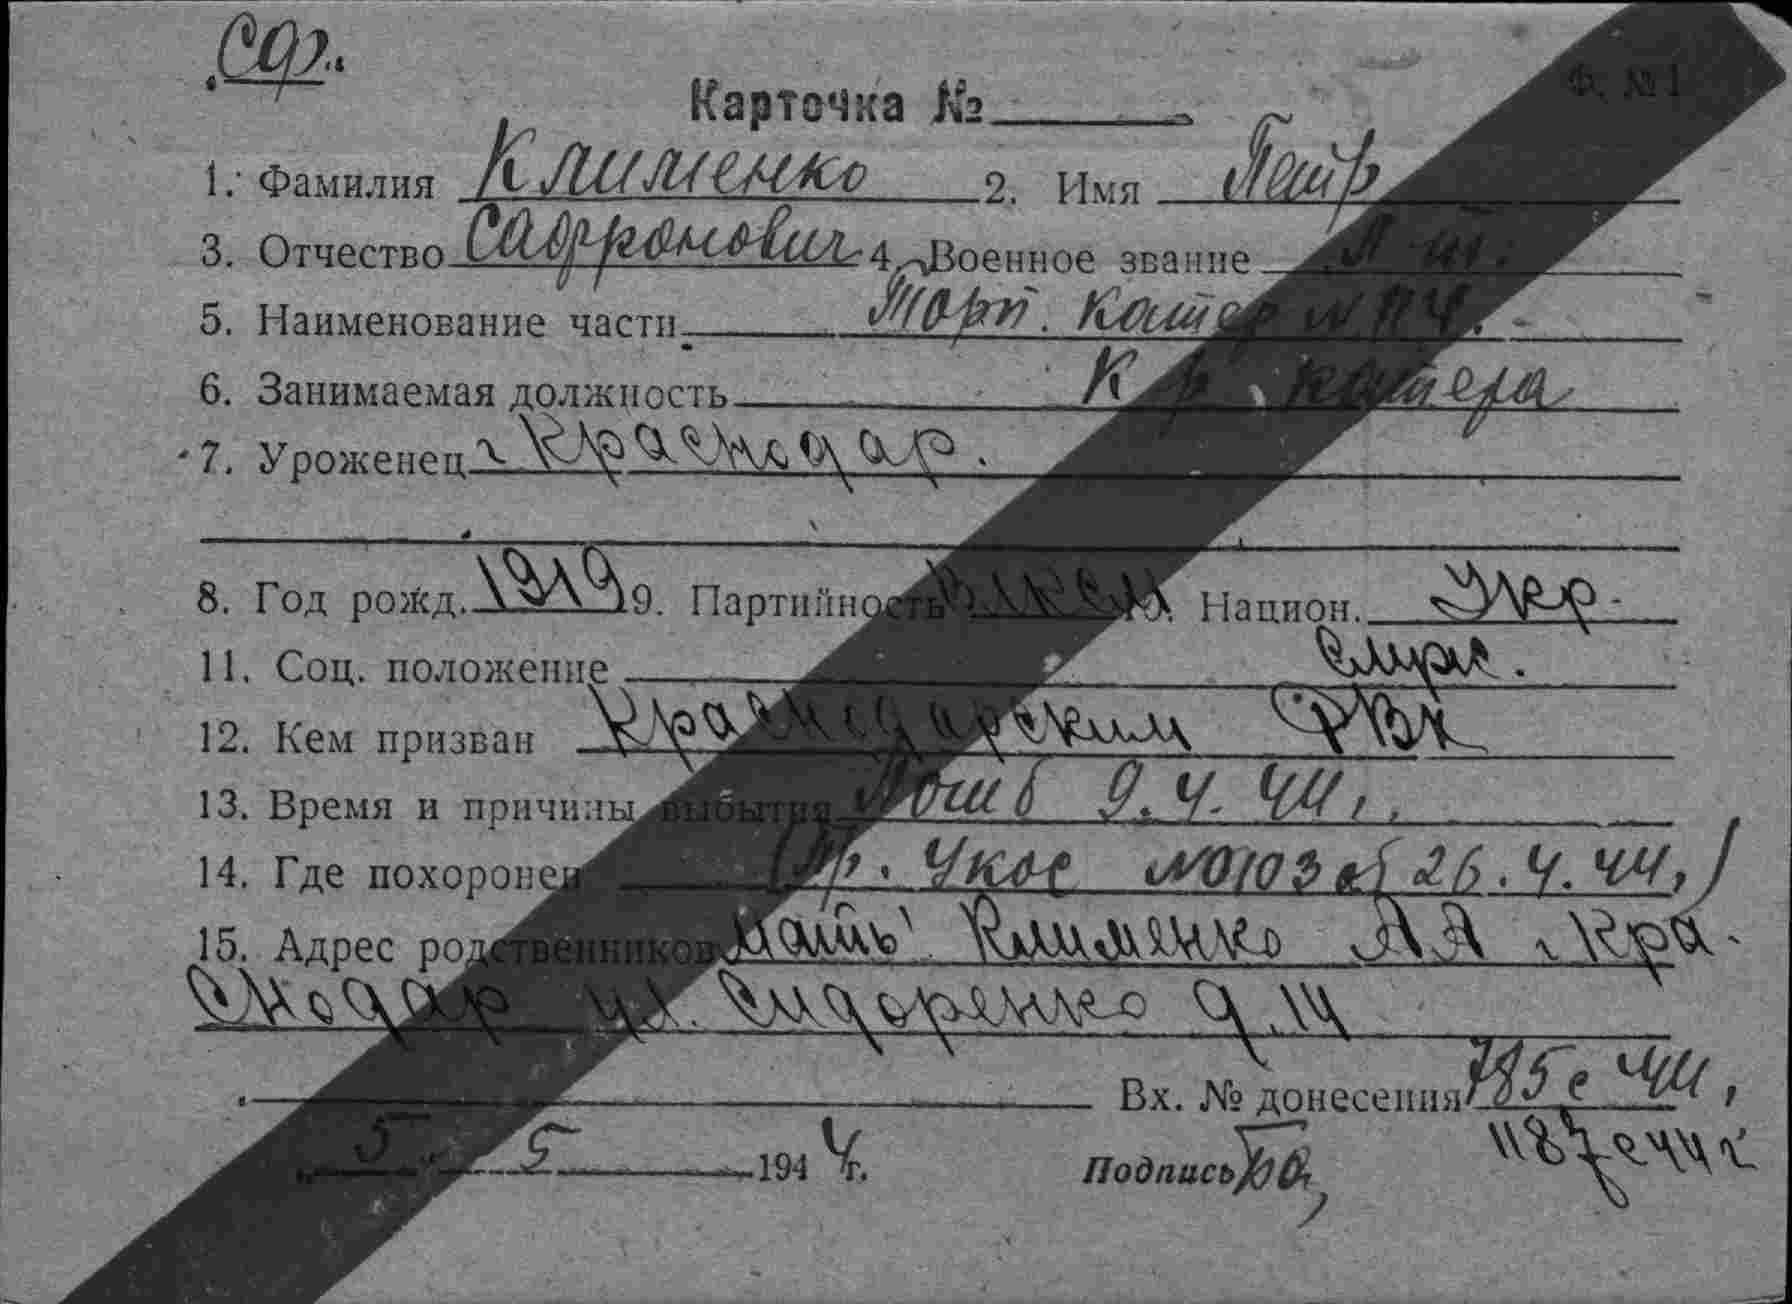 Сф.
Ф. №1
Карточка №
1. Фамилия Клименко 2. Имя Петр
3. Отчество Сафронович 4. Военное звание Л-т.
5. Наименование части Торп. катер
6. Занимаемая должность К-р катера
7. Уроженец г Краснодар.
8. Год рожд. 1919 9. Партийность ВЛКСМ 10. Национ. Укр.
11. Соц. положение
12. Кем призван Краснодарским РВК
13. Время и причины выбытия Погиб 9.4.44 г.
14. Где похоронен (Пр. 26.4.44 г)
15. Адрес родственников Мать Клименко АЯ г Кра-
снодар ул. Сидоренко д.
Вх. № донесения 785с 44 г
5 5 1944 г. Подпись
1187с 44 г